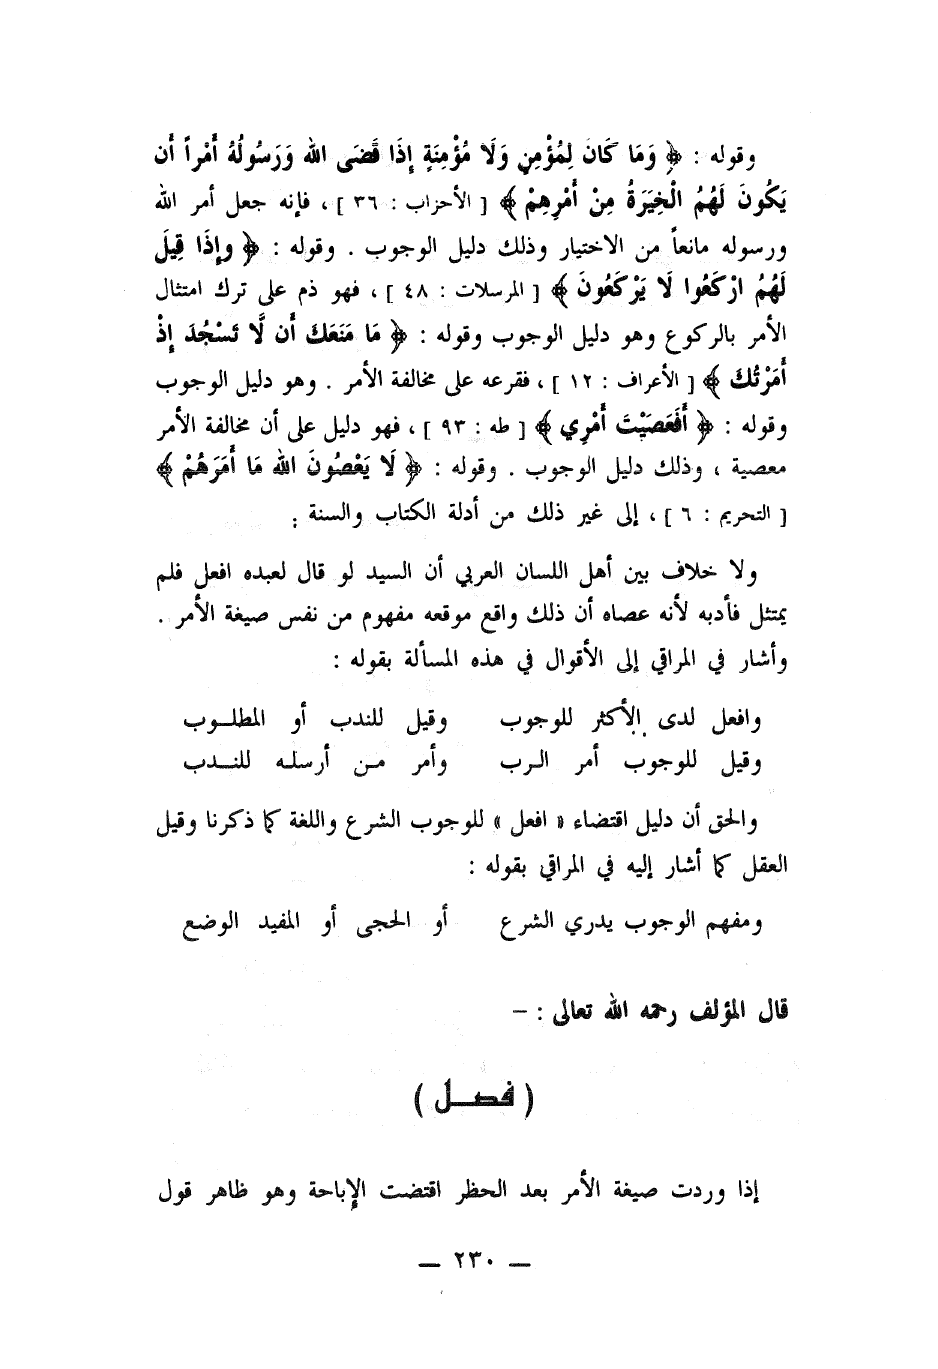 وقوله : ﴿ وَمَا كَانَ لِمُؤْمِنٍ وَلَا مُؤْمِنَةٍ إِذَا قَضَى الله وَرَسُولُهُ أَمْراً أَن
يَكُونَ لَهُمُ الْخِيَرَةُ مِنْ أَمْرِهِمْ ﴾ [ الأحزاب : ٣٦ ] ، فإنه جعل أمر الله
ورسوله مانعاً من الاختيار وذلك دليل الوجوب . وقوله : ﴿ وإِذَا قِيلَ
لَهُمُ ارْكَعُوا لَا يَرْكَعُونَ ﴾ [ المرسلات : ٤٨ ] ، فهو ذم على ترك امتثال
الأمر بالركوع وهو دليل الوجوب وقوله : ﴿ مَا مَنَعَكَ أَن لَّا تَسْجُدَ إِذْ
أَمَرْتُكَ ﴾ [ الأعراف : ١٢ ] ، فقرعه على مخالفة الأمر . وهو دليل الوجوب
وقوله : ﴿ أَفَعَصَيْتَ أَمْرِي ﴾ [ طه : ٩٣ ] ، فهو دليل على أن مخالفة الأمر
معصية ، وذلك دليل الوجوب . وقوله : ﴿ لَا يَعْصُونَ الله مَا أَمَرَهُمْ ﴾
[ التحريم : ٦ ] ، إلى غير ذلك من أدلة الكتاب والسنة :
ولا خلاف بين أهل اللسان العربي أن السيد لو قال لعبده افعل فلم
يمتثل فأدبه لأنه عصاه أن ذلك واقع موقعه مفهوم من نفس صيغة الأمر .
وأشار في المراقي إلى الأقوال في هذه المسألة بقوله :
وافعل لدى الأكثر للوجوب وقيل للندب أو المطلــوب
وقيل للوجوب أمر الـرب وأمر مـن أرسلـه للنــدب
والحق أن دليل اقتضاء « افعل » للوجوب الشرع واللغة كما ذكرنا وقيل
العقل كما أشار إليه في المراقي بقوله :
ومفهم الوجوب يدري الشرع أو الحجى أو المفيد الوضع
قال المؤلف رحمه الله تعالى : –
( فصـــل )
إذا وردت صيغة الأمر بعد الحظر اقتضت الإباحة وهو ظاهر قول
— ٢٣٠ —